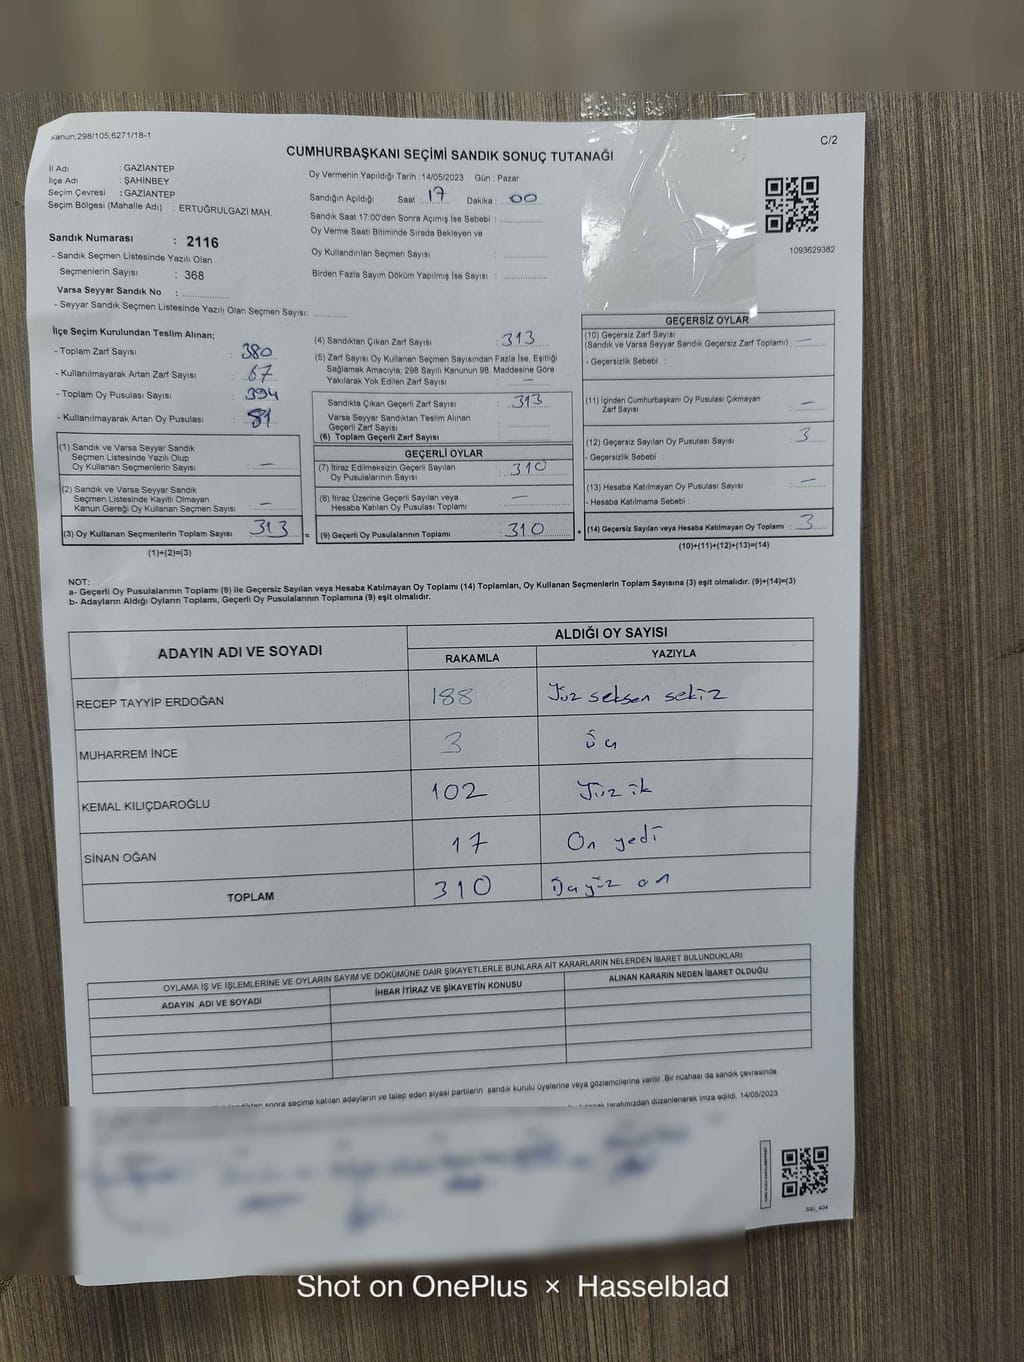 Kanun;298/105;6271/18-1
C/2
CUMHURBAŞKANI SEÇİMİ SANDIK SONUÇ TUTANAĞI
İl Adı : GAZİANTEP
İlçe Adı : ŞAHİNBEY
Seçim Çevresi : GAZİANTEP
Seçim Bölgesi (Mahalle Adı) : ERTUĞRULGAZİ MAH.
Sandık Numarası : 2116
- Sandık Seçmen Listesinde Yazılı Olan
Seçmenlerin Sayısı : 368
Varsa Seyyar Sandık No :
- Seyyar Sandık Seçmen Listesinde Yazılı Olan Seçmen Sayısı:
Oy Vermenin Yapıldığı Tarih : 14/05/2023 Gün : Pazar
Sandığın Açıldığı Saat : 17 Dakika : 00
Sandık Saat 17:00'den Sonra Açımış İse Sebebi :
Oy Verme Saati Bitiminde Sırada Bekleyen ve
Oy Kullandırılan Seçmen Sayısı :
Birden Fazla Sayım Döküm Yapılmış İse Sayısı :
1093629382
İlçe Seçim Kurulundan Teslim Alınan;
- Toplam Zarf Sayısı : 380
- Kullanılmayarak Artan Zarf Sayısı : 67
- Toplam Oy Pusulası Sayısı : 394
- Kullanılmayarak Artan Oy Pusulası : 81
(1) Sandık ve Varsa Seyyar Sandık
Seçmen Listesinde Yazılı Olup
Oy Kullanan Seçmenlerin Sayısı : —
(2) Sandık ve Varsa Seyyar Sandık
Seçmen Listesinde Kayıtlı Olmayan
Kanun Gereği Oy Kullanan Seçmen Sayısı : —
(3) Oy Kullanan Seçmenlerin Toplam Sayısı : 313
(1)+(2)=(3)
(4) Sandıktan Çıkan Zarf Sayısı : 313
(5) Zarf Sayısı Oy Kullanan Seçmen Sayısından Fazla İse, Eşitliği
Sağlamak Amacıyla; 298 Sayılı Kanunun 98. Maddesine Göre
Yakılarak Yok Edilen Zarf Sayısı : —
Sandıkta Çıkan Geçerli Zarf Sayısı : 313
Varsa Seyyar Sandıktan Teslim Alınan
Geçerli Zarf Sayısı :
(6) Toplam Geçerli Zarf Sayısı :
GEÇERLİ OYLAR
(7) İtiraz Edilmeksizin Geçerli Sayılan
Oy Pusulalarının Sayısı : 310
(8) İtiraz Üzerine Geçerli Sayılan veya
Hesaba Katılan Oy Pusulası Toplamı : —
= (9) Geçerli Oy Pusulalarının Toplamı : 310 +
GEÇERSİZ OYLAR
(10) Geçersiz Zarf Sayısı
(Sandık ve Varsa Seyyar Sandık Geçersiz Zarf Toplamı) : —
- Geçersizlik Sebebi :
(11) İçinden Cumhurbaşkanı Oy Pusulası Çıkmayan
Zarf Sayısı : —
(12) Geçersiz Sayılan Oy Pusulası Sayısı : 3
- Geçersizlik Sebebi :
(13) Hesaba Katılmayan Oy Pusulası Sayısı : —
- Hesaba Katılmama Sebebi :
(14) Geçersiz Sayılan veya Hesaba Katılmayan Oy Toplamı : 3
(10)+(11)+(12)+(13)=(14)
NOT:
a- Geçerli Oy Pusulalarının Toplamı (9) ile Geçersiz Sayılan veya Hesaba Katılmayan Oy Toplamı (14) Toplamları, Oy Kullanan Seçmenlerin Toplam Sayısına (3) eşit olmalıdır. (9)+(14)=(3)
b- Adayların Aldığı Oyların Toplamı, Geçerli Oy Pusulalarının Toplamına (9) eşit olmalıdır.
ADAYIN ADI VE SOYADI
ALDIĞI OY SAYISI
RAKAMLA YAZIYLA
RECEP TAYYİP ERDOĞAN 188 Yüz seksen sekiz
MUHARREM İNCE 3 Üç
KEMAL KILIÇDAROĞLU 102 Yüz ik
SİNAN OĞAN 17 On yedi
TOPLAM 310 Üçyüz on
OYLAMA İŞ VE İŞLEMLERİNE VE OYLARIN SAYIM VE DÖKÜMÜNE DAİR ŞİKAYETLERLE BUNLARA AİT KARARLARIN NELERDEN İBARET BULUNDUKLARI
ADAYIN ADI VE SOYADI İHBAR İTİRAZ VE ŞİKAYETİN KONUSU ALINAN KARARIN NEDEN İBARET OLDUĞU
sonra seçime katılan adayların ve talep eden siyasi partilerin sandık kurulu üyelerine veya gözlemcilerine verilir. Bir nüshası da sandık çevresinde
tarafımızdan düzenlenerek imza edildi. 14/05/2023
SSI_404
Shot on OnePlus × Hasselblad